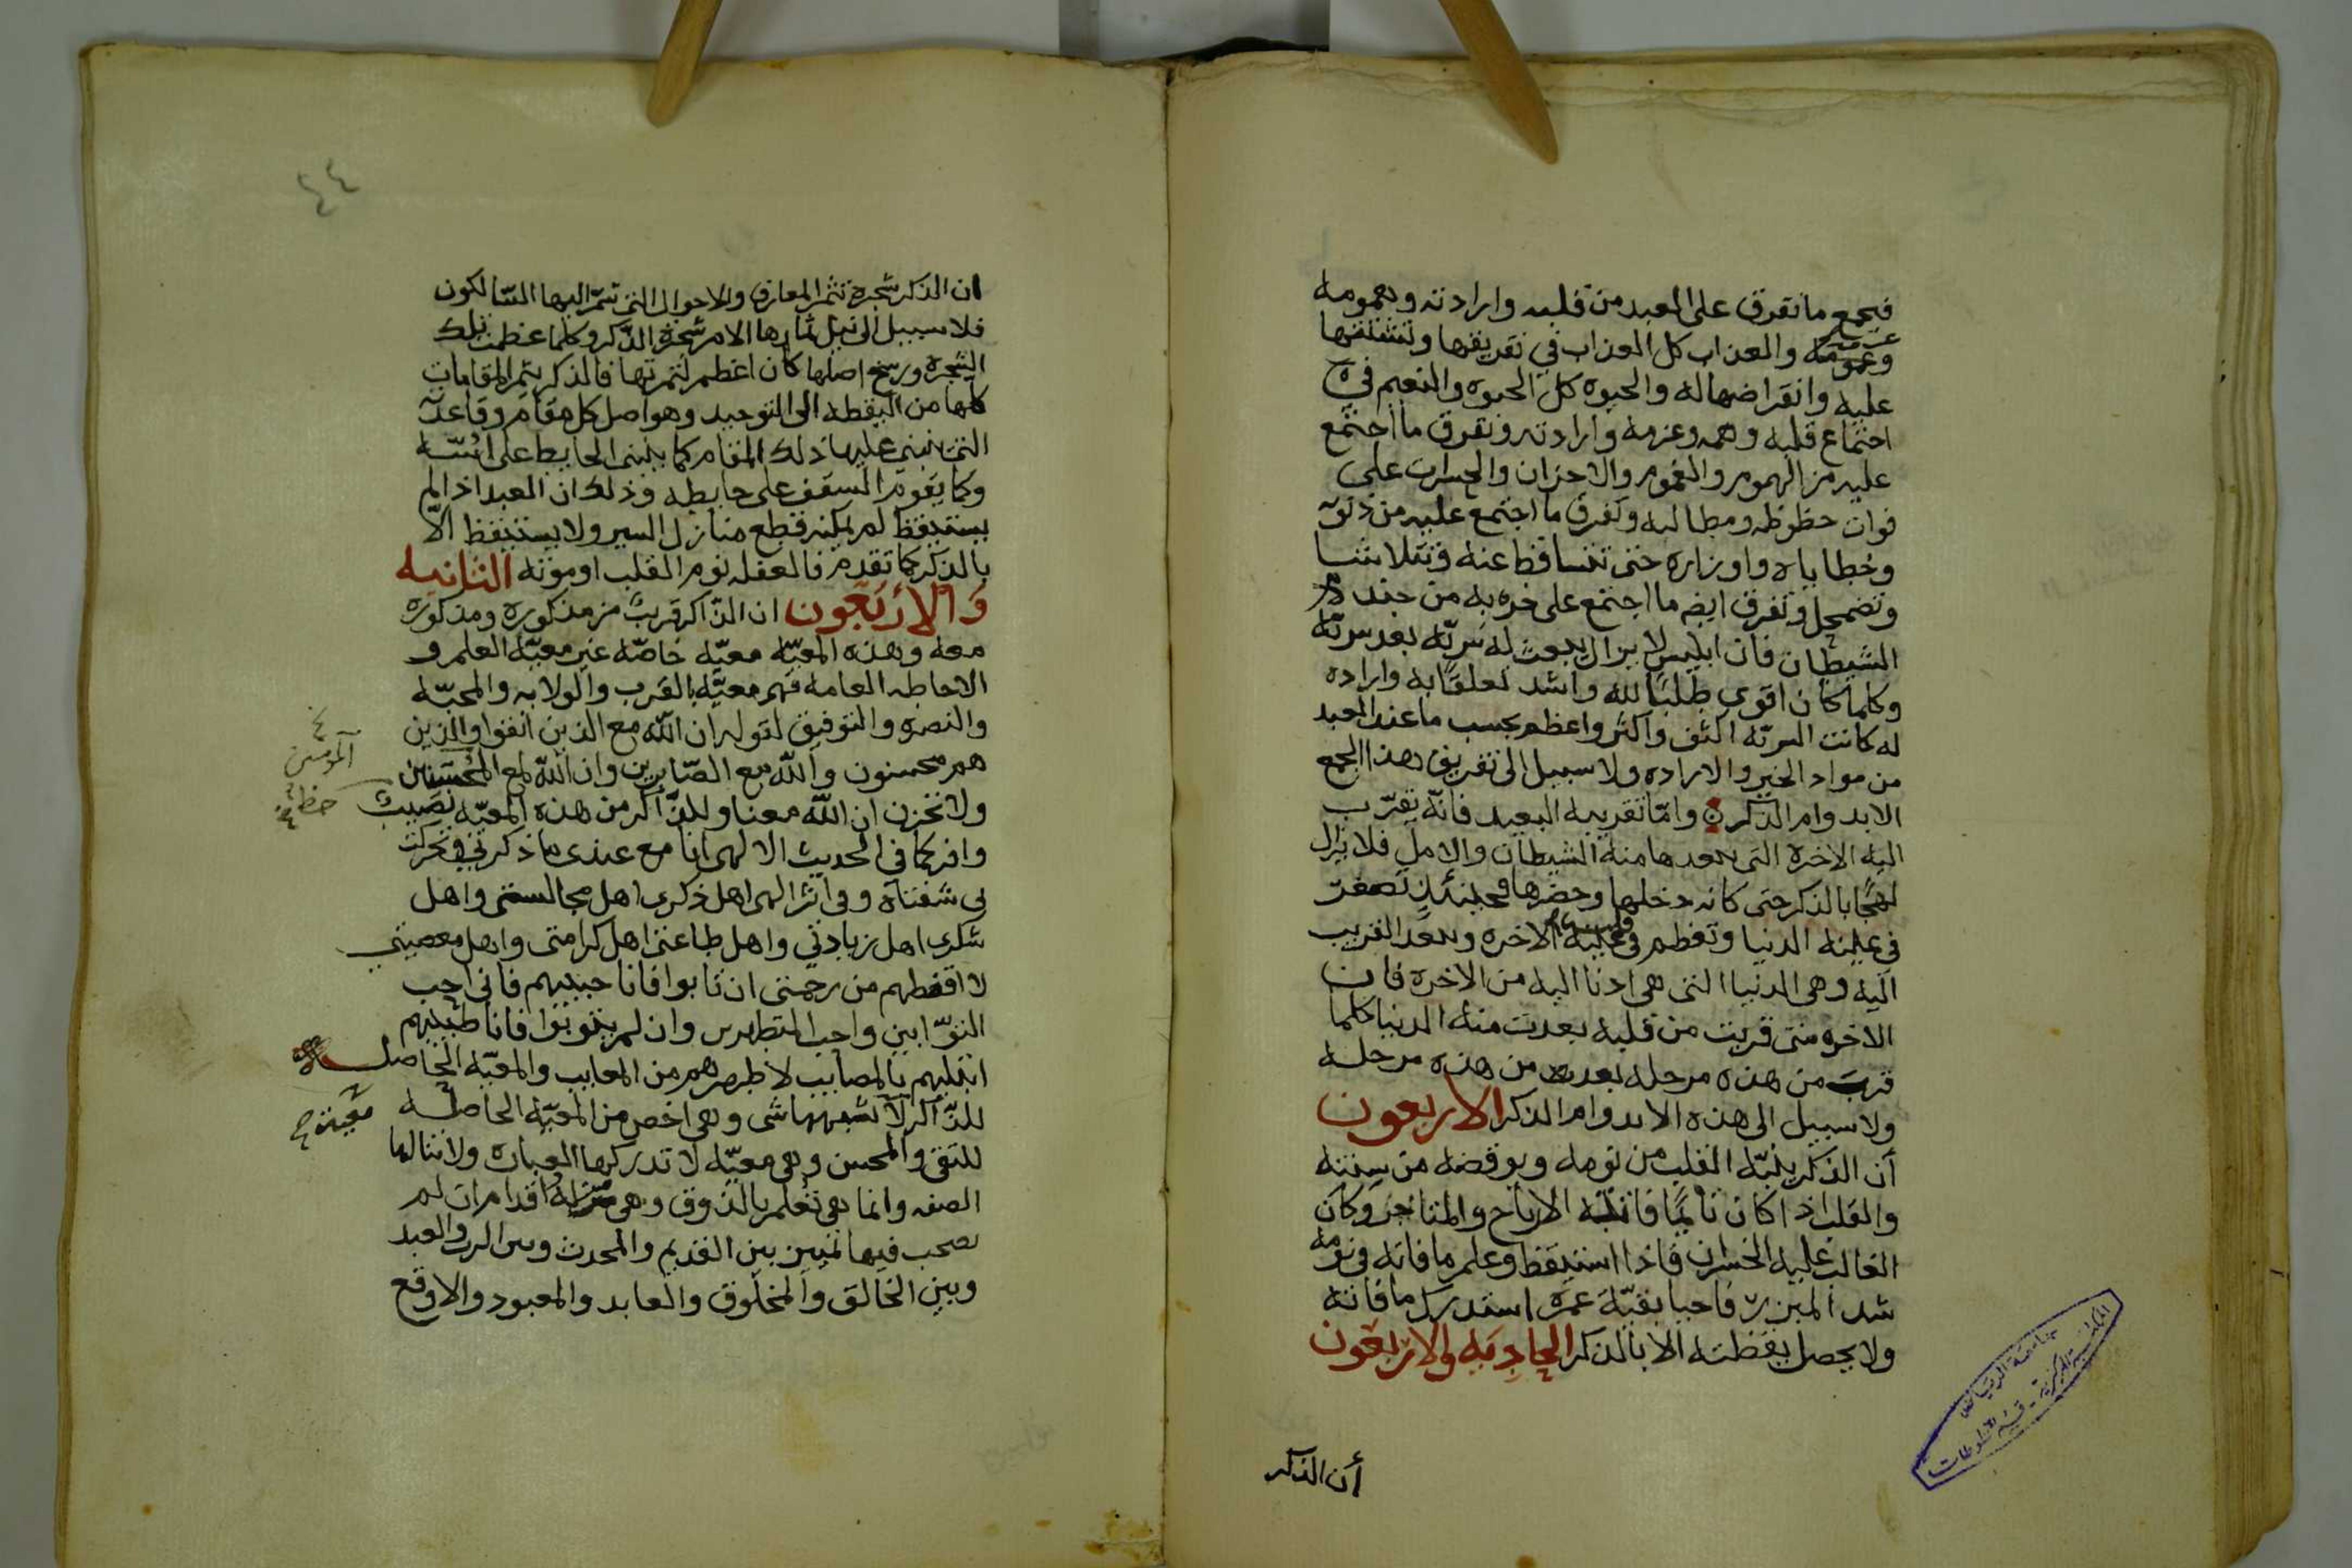 فيجمع ما تفرق على العبد من قلبه وارادته وهمومه
وعزومه والعذاب كل العذاب في تفريقها وتشتتها
عليه وانقراضها له والحيوه كل الحيوه والنعيم في
اجتماع قلبه وهمه وعزمه وارادته وتفرق ما اجتمع
عليه من الهموم والغموم والاحزان والحسرات على
فوات حظوظه ومطالبه وتفرق ما اجتمع عليه من ذنوبه
وخطاياه واوزاره حتى تتساقط عنه وتتلاشا
وتضمحل وتفرق ايضا ما اجتمع على حربه من جند
الشيطان فان ابليس لا يزال يبعث له سريّه بعد سريّه
وكلما كان اقوى طلبًا لله واشد تعلقًا به واراده
له كانت السريّه اكثف واكثر واعظم بحسب ما عند العبد
من مواد الخير والاراده ولا سبيل الى تفريق هذا الجمع
الا بدوام الذكر وامّا تقريبه البعيد فانّه يقرّب
اليه الاخره التى يبعدها منه الشيطان والامل فلا يزال
لهجًا بالذكر حتى كانه دخلها وحضرها فحينئذٍ تصغر
في عينه الدنيا وتعظم في قلبه الاخره ويبعد القريب
اليه وهى الدنيا التى هى ادنا اليه من الاخره فان
الاخره متى قربت من قلبه بعدت منه الدنيا كلما
قرب من هذه مرحله بعد من هذه مرحله
ولا سبيل الى هذه الا بدوام الذكر الاربعون
أن الذكر ينبّه القلب من نومه ويوقضه من سنته
والقلب اذا كان نائمًا فاتته الارباح والمتاجر وكان
الغالب عليه الخسران فاذا استيقظ وعلم ما فاته في نومه
شد المئزر فاحيا بقيّة عمره استدرك ما فاته
ولا يحصل يقظته الا بالذكر الحاديه والاربعون
أن الذكر
جامعة الرياض
المكتبة المركزية - قسم المخطوطات
٤٤
ان الذكر شجرة تثمر المعارف والاحوال التى شمّر اليها السّالكون
فلا سبيل الى نيل ثمارها الا من شجرة الذّكر وكلما عظمت تلك
الشجره ورسخ اصلها كان اعظم لثمرتها فالذكر يثمر المقامات
كلها من اليقظه الى التوحيد وهو اصل كل مقام وقاعدته
التى ينبني عليها ذلك المقام كما يبنى الحايط على اسّه
وكما يقوم السقف على حايطه وذلك ان العبد اذا لم
يستيقظ لم يمكنه قطع منازل السير ولا يستيقظ الّا
بالذكر كما تقدم فالغفله نوم القلب او موته الثانيه
والاربعون ان الذّاكر قريب من مذكوره ومذكوره
معه وهذه المعيّه معيّه خاصّه غير معيّه العلم و
الاحاطه العامه فهى معيّه بالقرب والولايه والمحبّه
والنصره والتوفيق لقوله ان اللّه مع الذين اتقوا والذين
هم محسنون واللّه مع الصّابرين وان اللّه لمع المحسنين
المومنين
ولا تحزن ان اللّه معنا وللذّاكر من هذه المعيّه نصيب
حظ
وافر كما في الحديث الالهى انا مع عبدى ما ذكرني وتحركت
بى شفتاه وفى اثر الهى اهل ذكرى اهل مجالستى واهل
شكرى اهل زيادتي واهل طاعتى اهل كرامتى واهل معصيتي
لا اقنطهم من رحمتى ان تابوا فانا حبيبهم فانى احب
التوّابين واحب المتطهرين وان لم يتوبوا فانا طبيبهم
ابتليهم بالمصايب لاطهرهم من المعايب والمعيّه الحاصله
للذّاكر لا تشبهها شى وهى اخص من المعيّه الحاصله
للتقى والمحسن وهى معيّه لا تدركها العباره ولا تنالها
الصفه وانما هى تعلم بالذوق وهى مزلّة اقدام ان لم
يصحب فيها تميين بين القديم والمحدث وبين الرب والعبد
وبين الخالق والمخلوق والعابد والمعبود والا وقع